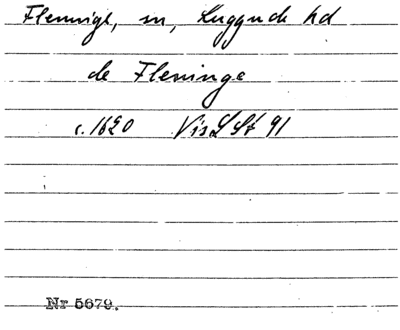 Fleninge, sn, Luggude hd
de Fleninge
c. 1620 Vis L St 91
Nr 5679.